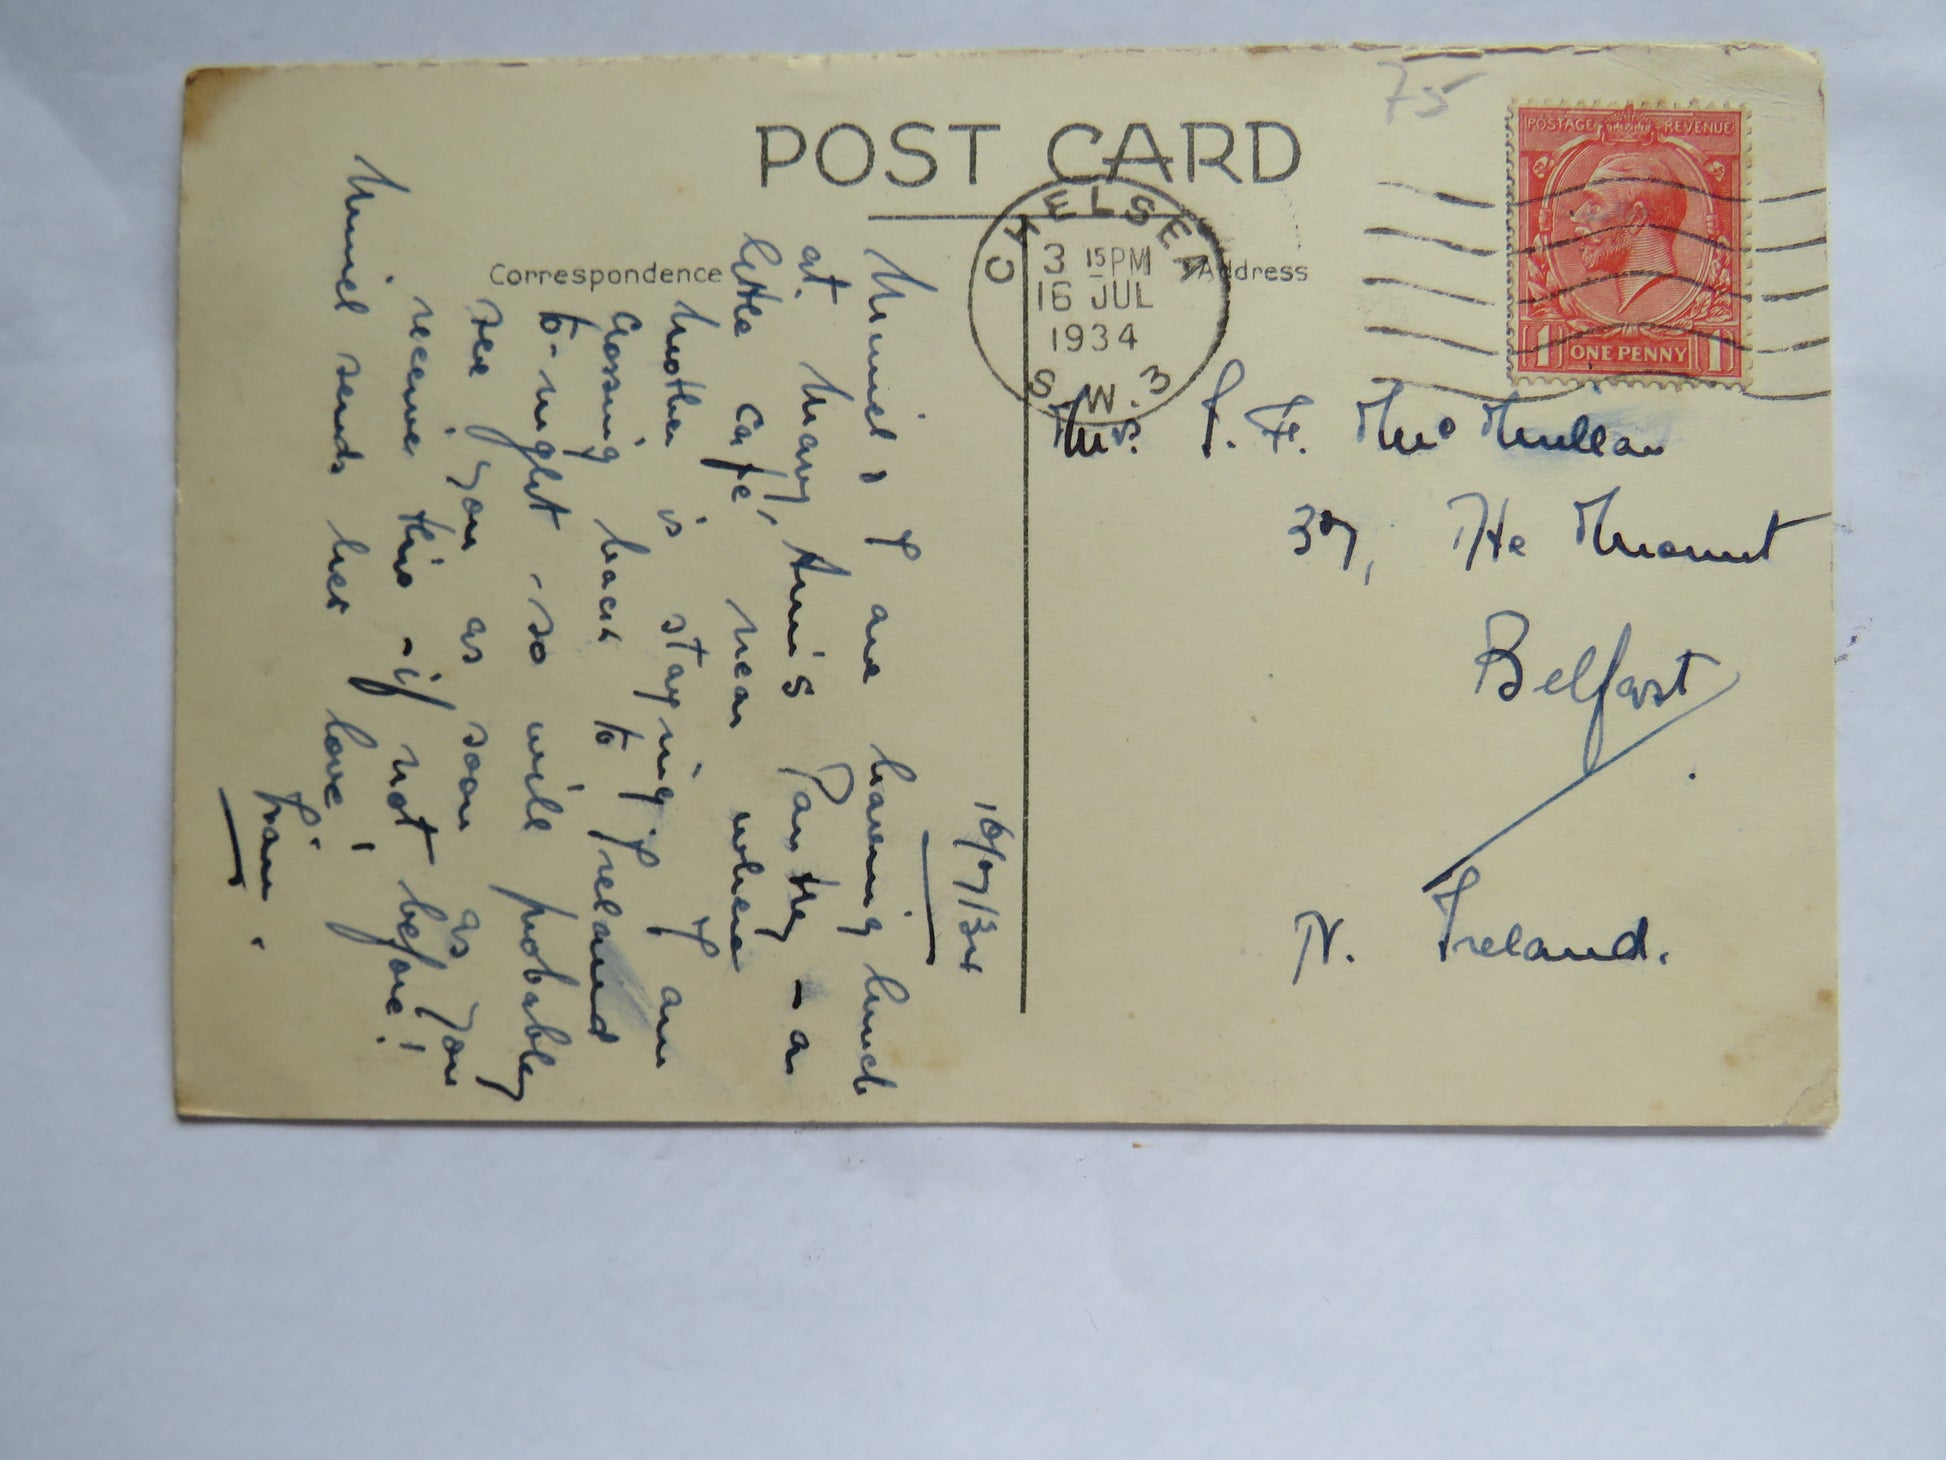 75
POST CARD
POSTAGE REVENUE
1 ONE PENNY 1
CHELSEA
3 15 PM
16 JUL
1934
S.W.3
Correspondence
Address
16/07/34
Muriel & I are having lunch
at Mary Ann's Pantry - a
little café, near where
Mother is staying. I am
Crossing back to Ireland
to-night - so will probably
see you as soon as you
receive this - if not before!
Muriel sends her love!
Fran.
J. F. McMullan
37, The Mount
Belfast
N. Ireland.